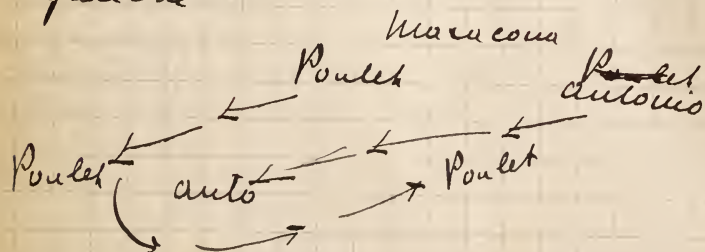 Maracona
Poulet
Poulet
antonio
Poulet
anto
Poulet